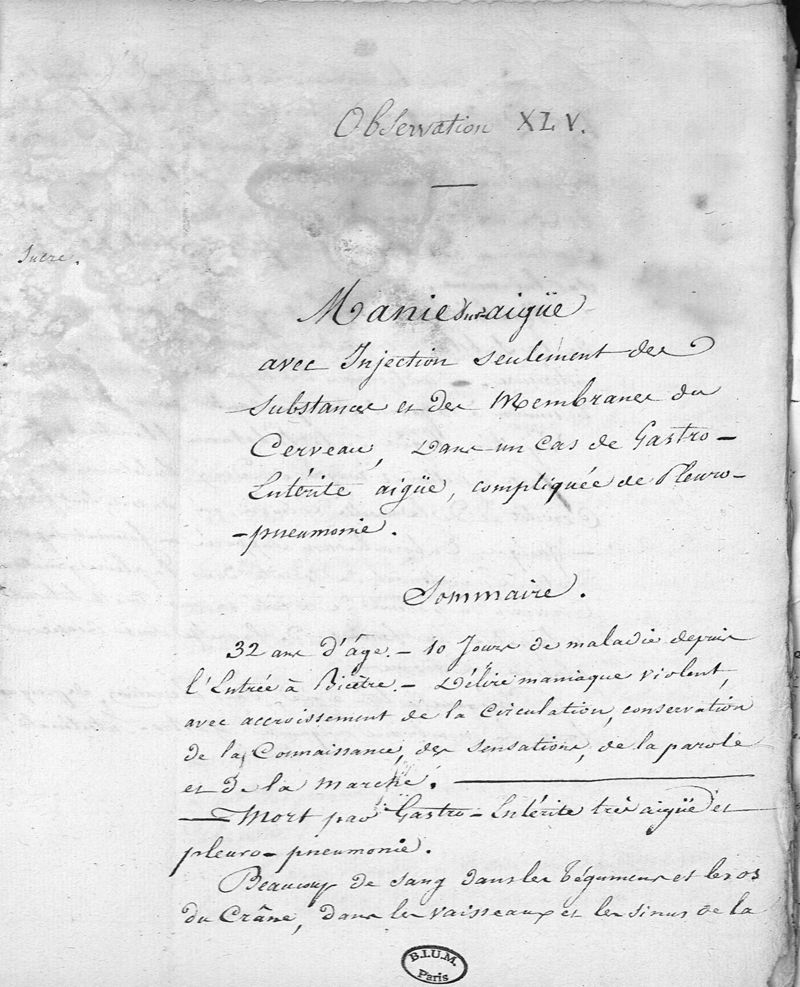 Observation XLV.
Sucre.
Manie sur-aigüe
avec Injection seulement des
substances et des Membranes du
Cerveau, Dans un Cas de Gastro-
Entérite aigüe, compliquée de Pleuro-
-pneumonie.
Sommaire.
32 ans d'âge. - 10 Jours de maladie depuis
l'Entrée à Bicêtre. - Délire maniaque violent,
avec accroissement de la Circulation, conservation
de la Connaissance, des sensations, de la parole
et de la marche.
- Mort par Gastro-Entérite très aigüe et
pleuro-pneumonie.
Beaucoup de sang dans les tégumens et les os
du Crâne, dans les vaisseaux et les sinus de la
B.I.U.M.
Paris